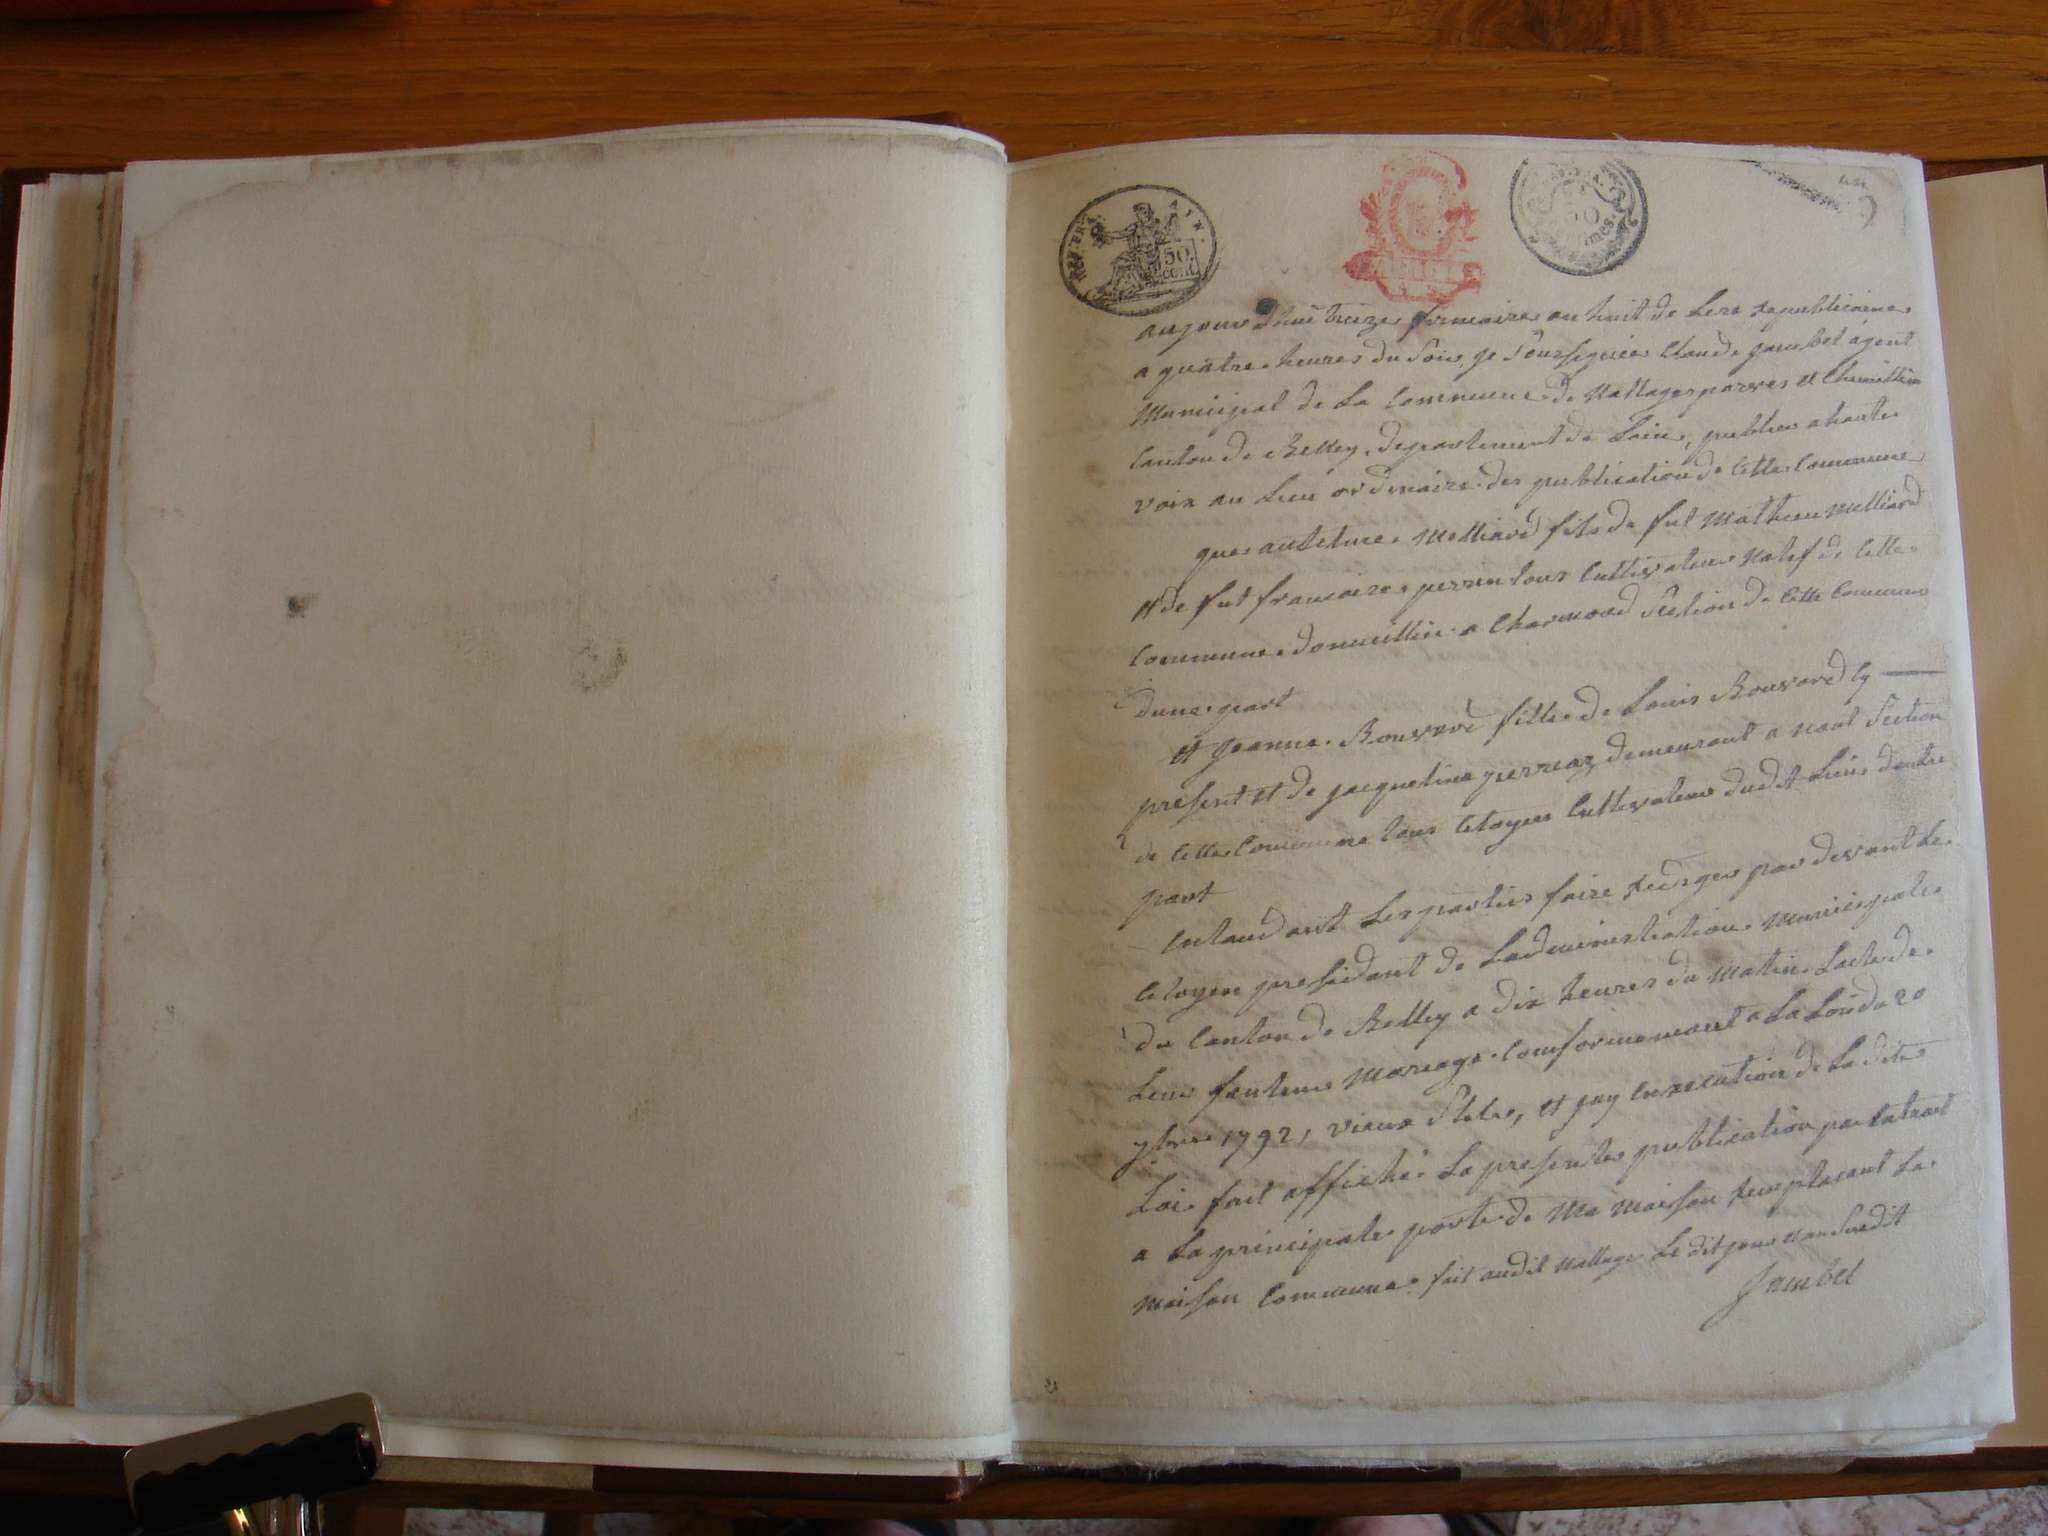 REP. FRA.
AIN.
50
cent.
aujourdhui treize frimaire an huit de Lere republicaine
a quatre heures du Soir, je Soussigniee Claude jambet agent
Municipal de La Commune de Nattages parves et Chemillieu
Canton de Belley, departement de Lain, publier a haute
voix au Lieu ordinaire des publication de Cette Commune
que antelme Molliard fils de fut Mathieu Molliard
et de fut francoize perrin tous Cultivateur Natif de Cette
Commune domicillié a Charmond Section de Cette Commune
dune part
et jeanne Bouvard fille de Louis Bouvard Cy
present et de jacqueline perreaz demeurant a nant Section
de Cette Commune tous Citoyen Cultivateur dudit Lieu dautre
part
Entandant Les parties faire rediger par devant Le
Citoyen presidant de Ladministration Municipale
du Canton de Belley a dix heures du Mattin Lacte de
Leur fenteur Mariage Conformemant a La Loi du 20
7bre 1792, vieux Stile, et jay En execution de La dite
Loi fait affiché La presente publication par Extrait
a La principale porte de Ma Maison remplacant La
Maison Commune fait audit Nattage Le dit jour et an Susdit
Jambet